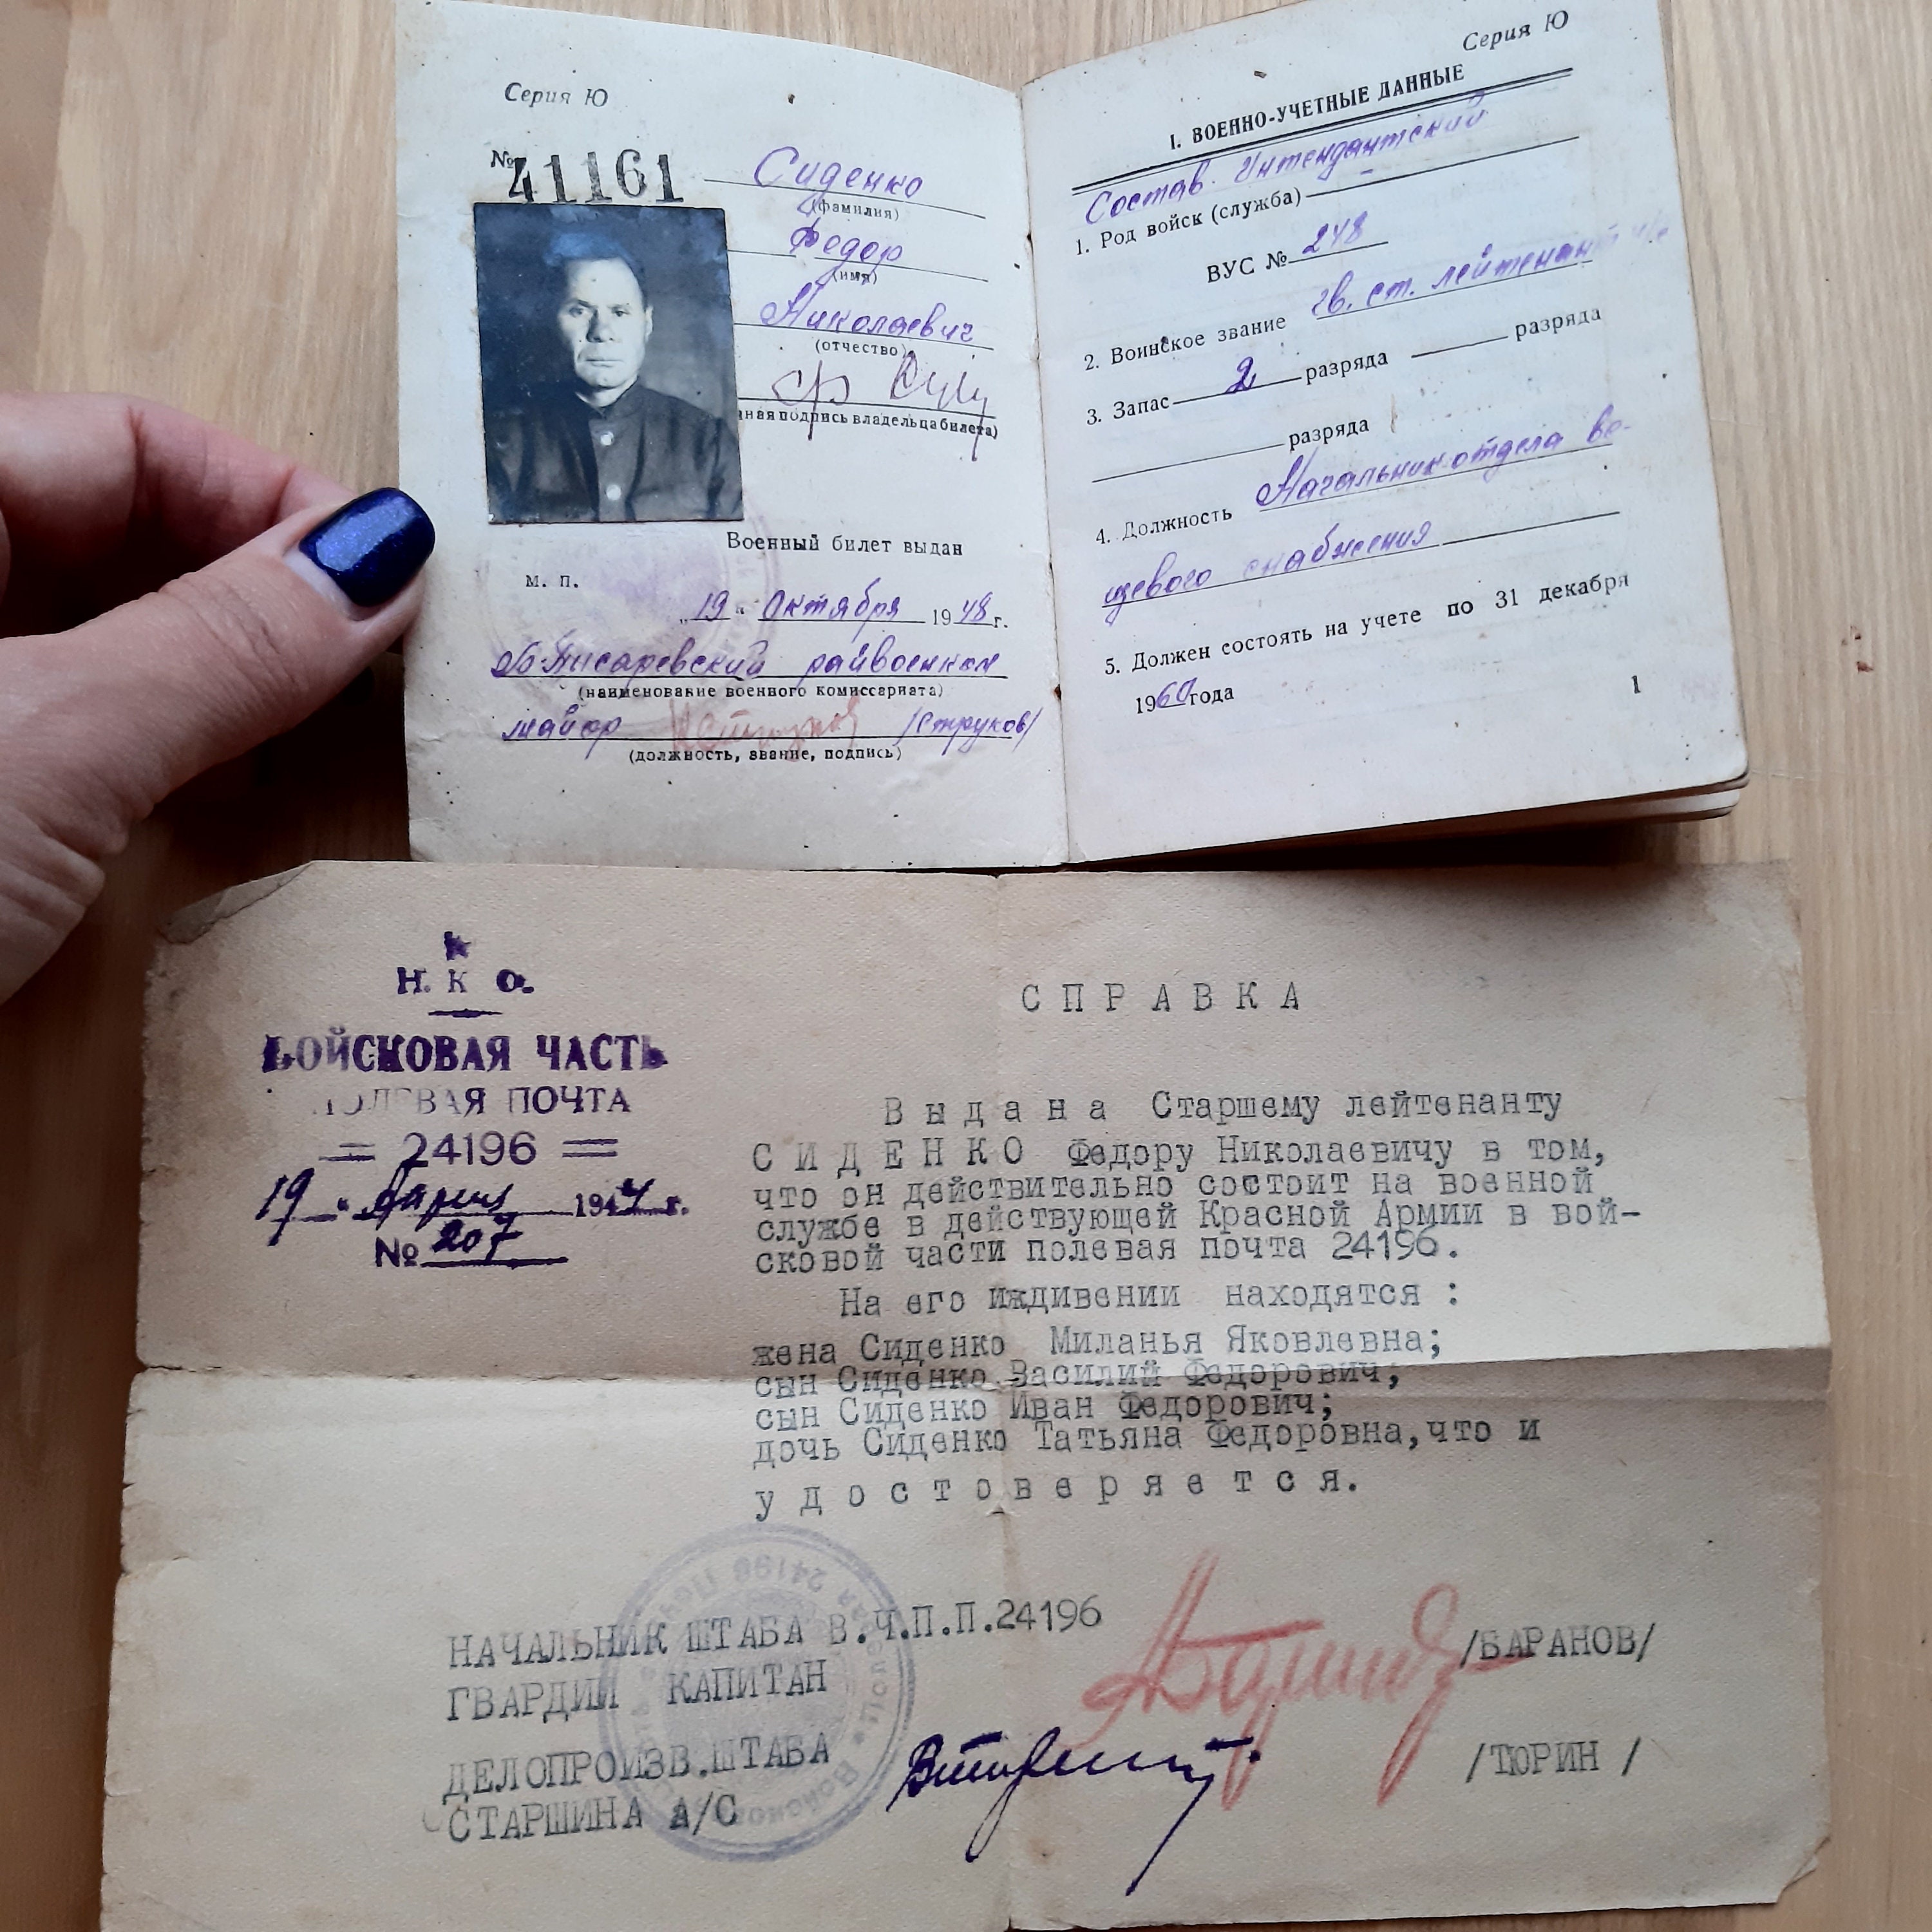 Серия Ю
№ 41161
Сиденко
(фамилия)
Федор
(имя)
Николаевич
(отчество)
ная подпись владельца билета)
Военный билет выдан
м. п.
„19" Октября 1948 г.
райвоенком
(наименование военного комиссариата)
майор /Струков/
(должность, звание, подпись)
Серия Ю
I. ВОЕННО-УЧЕТНЫЕ ДАННЫЕ
Состав Интендантский
1. Род войск (служба) —
ВУС № 248
2. Воинское звание гв. ст. лейтенант
3. Запас 2 разряда разряда
разряда
4. Должность Начальник отдела ве-
щевого снабжения
5. Должен состоять на учете по 31 декабря
1960 года
1
Н. К О.
ВОЙСКОВАЯ ЧАСТЬ
ПОЛЕВАЯ ПОЧТА
= 24196 =
19 " апреля 1944 г.
№ 207
С П Р А В К А
В ы д а н а Старшему лейтенанту
С И Д Е Н К О Федору Николаевичу в том,
что он действительно состоит на военной
службе в действующей Красной Армии в вой-
сковой части полевая почта 24196.
На его иждивении находятся :
жена Сиденко Миланья Яковлевна;
сын Сиденко Василий Федорович;
сын Сиденко Иван Федорович;
дочь Сиденко Татьяна Федоровна,что и
у д о с т о в е р я е т с я.
НАЧАЛЬНИК ШТАБА В.Ч.П.П.24196
ГВАРДИИ КАПИТАН /БАРАНОВ/
ДЕЛОПРОИЗВ.ШТАБА
СТАРШИНА А/С /ТЮРИН /